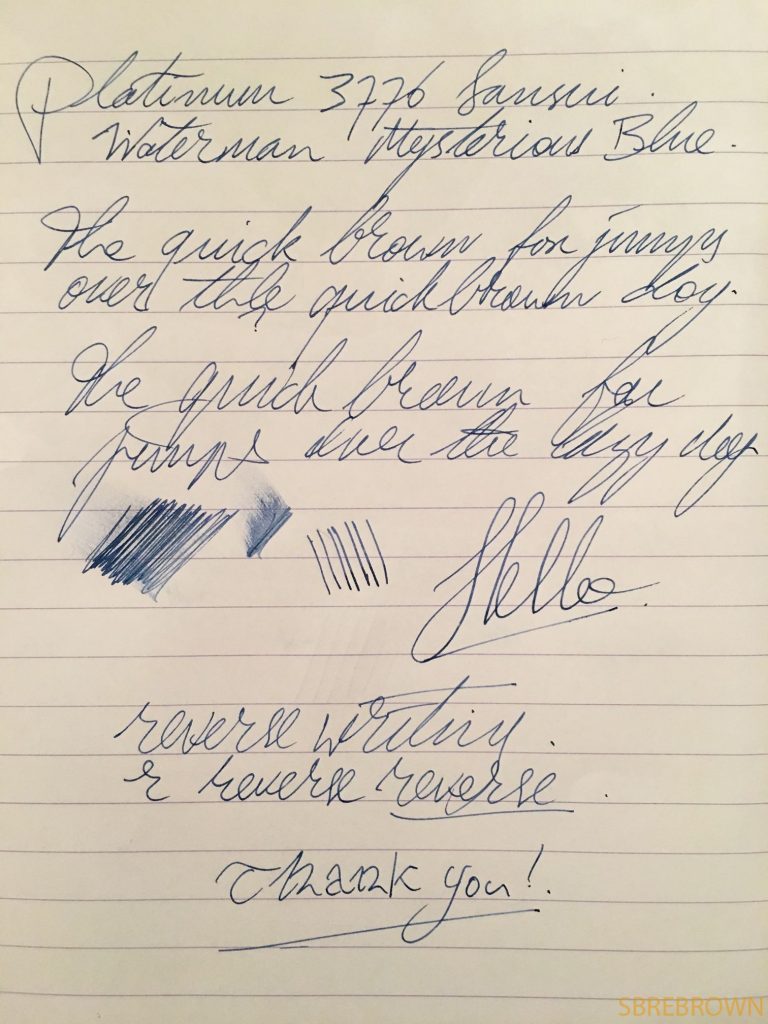 Platinum 3776 Sansui.
Waterman Mysterious Blue.
The quick brown fox jumps
over the quick brown dog.
The quick brown fox
jumps over the lazy dog
Hello.
reverse writing.
r reverse reverse.
Thank you!.
SBREBROWN